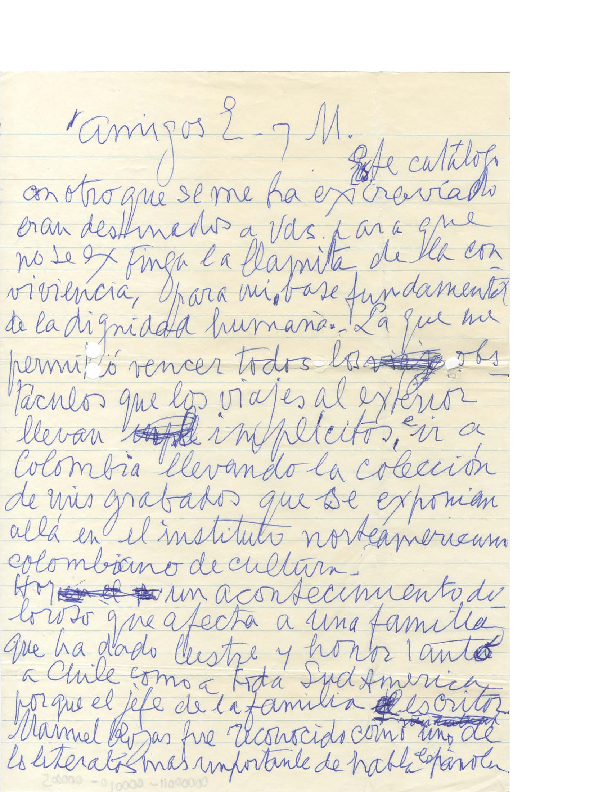 Amigos E - y M.
Este catálogo
con otro que se me ha extraviado
eran destinados a Vds para que
no se extinga la llamita de la con
viviencia, para mi, base fundamental
de la dignidad humana. - La que me
permitió vencer todos los obs_
táculos que los viajes al exterior
llevan implícitos, e ir a
Colombia llevando la colección
de mis grabados que se exponian
allá en el instituto norteamericano
colombiano de cultura.
Hoy un acontecimiento do
loroso que afecta a una familia
que ha dado lustre y honor tanto
a Chile como a toda SudAmerica
porque el jefe de la familia escritor
Manuel Rojas fue reconocido como uno de
los literatos mas importante de habla española.